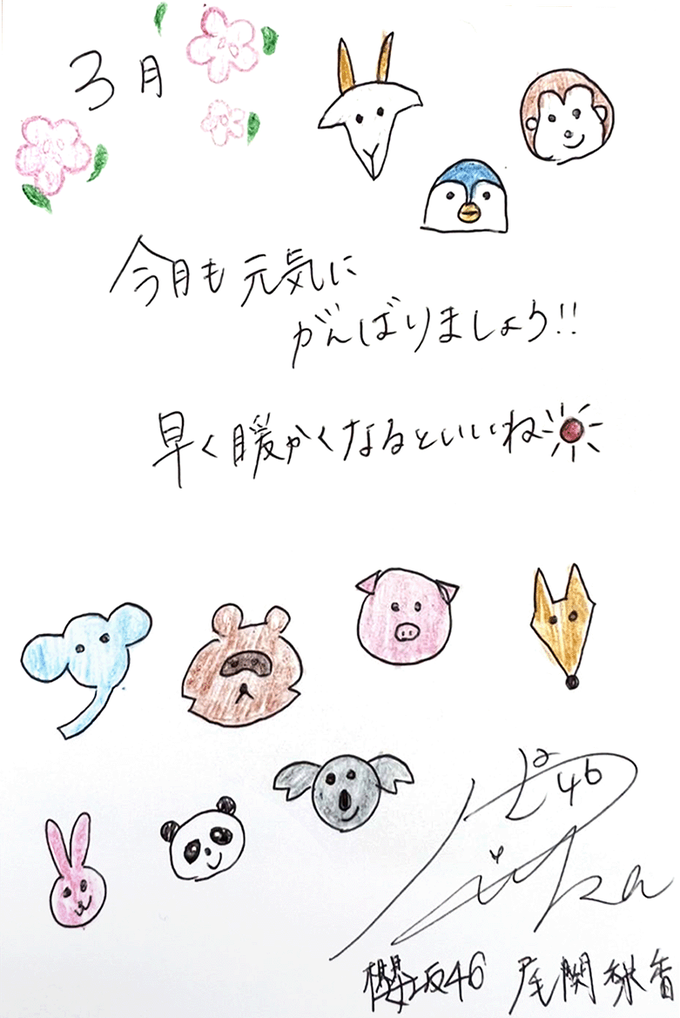 3月
今月も元気に
がんばりましょう!!
早く暖かくなるといいね
46
櫻坂46 尾関梨香